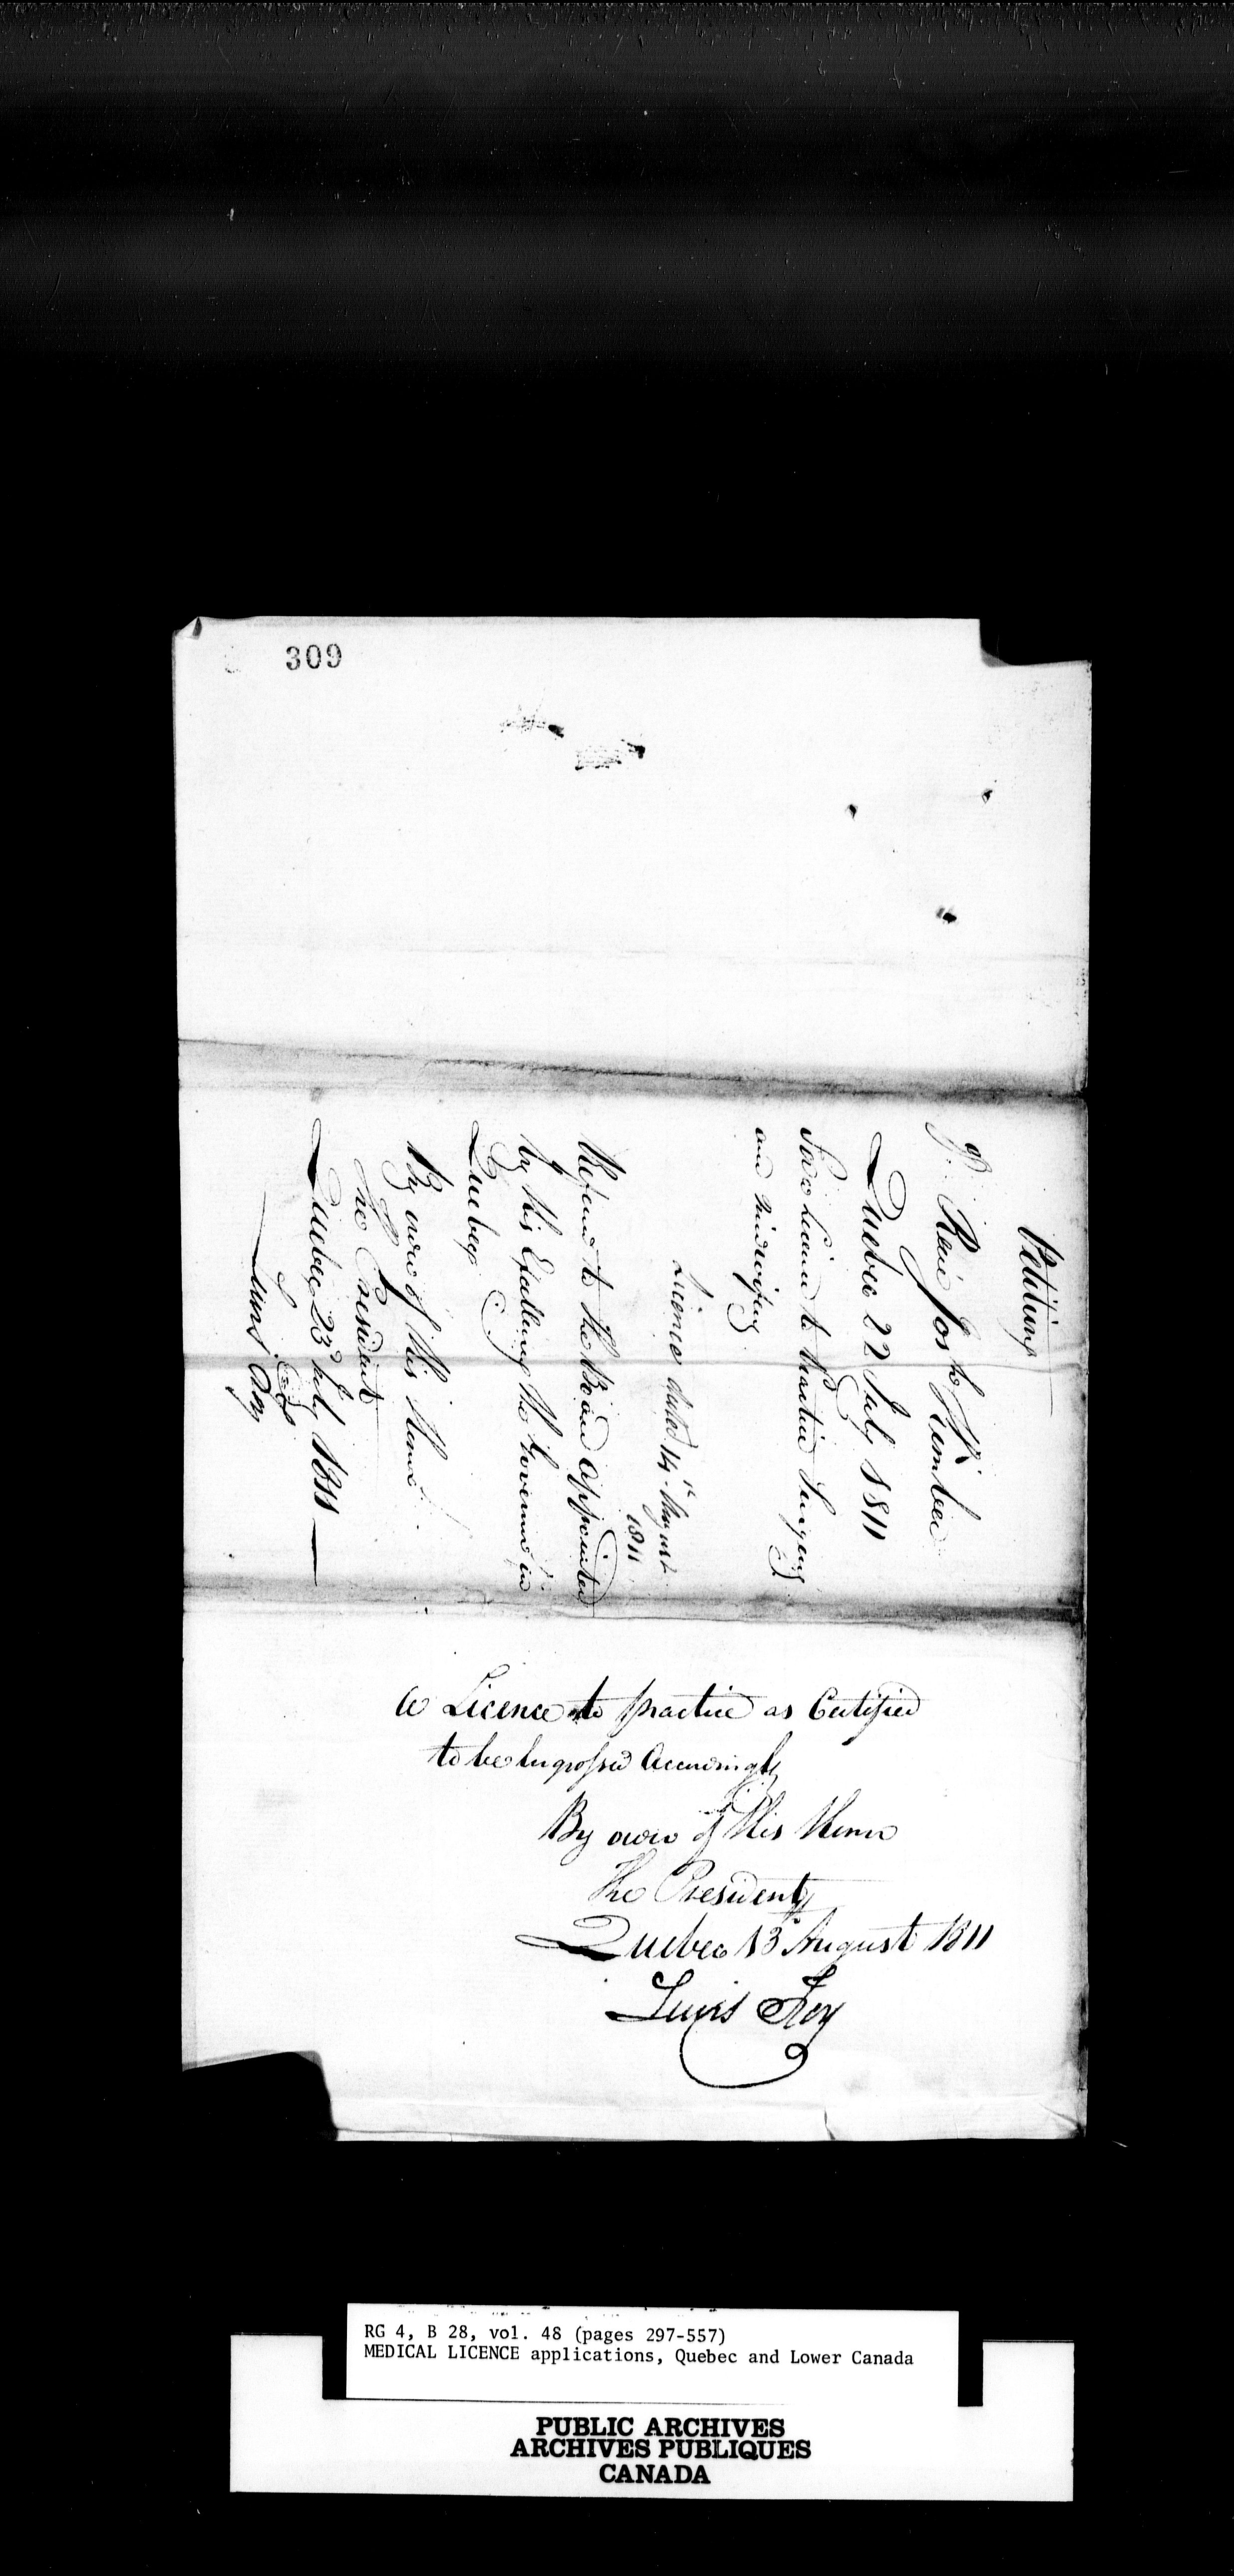 309
Petition
of
Réné Jos h Kimber
Quebec 22 July 1811
For a Licence to Practice Surgery
and Midwifery
Licence dated 14th August
1811
Referred to the Board appointed
by His Excellency the Governor in
Quebec
By order of His Honor
The President
Quebec 23d July 1811
Louis Foy
A Licence to practice as Certified
to be Engrossed Accordingly
By order of His Honor
The President
Quebec 13 August 1811
Louis Foy
RG 4, B 28, vol. 48 (pages 297-557)
MEDICAL LICENCE applications, Quebec and Lower Canada
PUBLIC ARCHIVES
ARCHIVES PUBLIQUES
CANADA